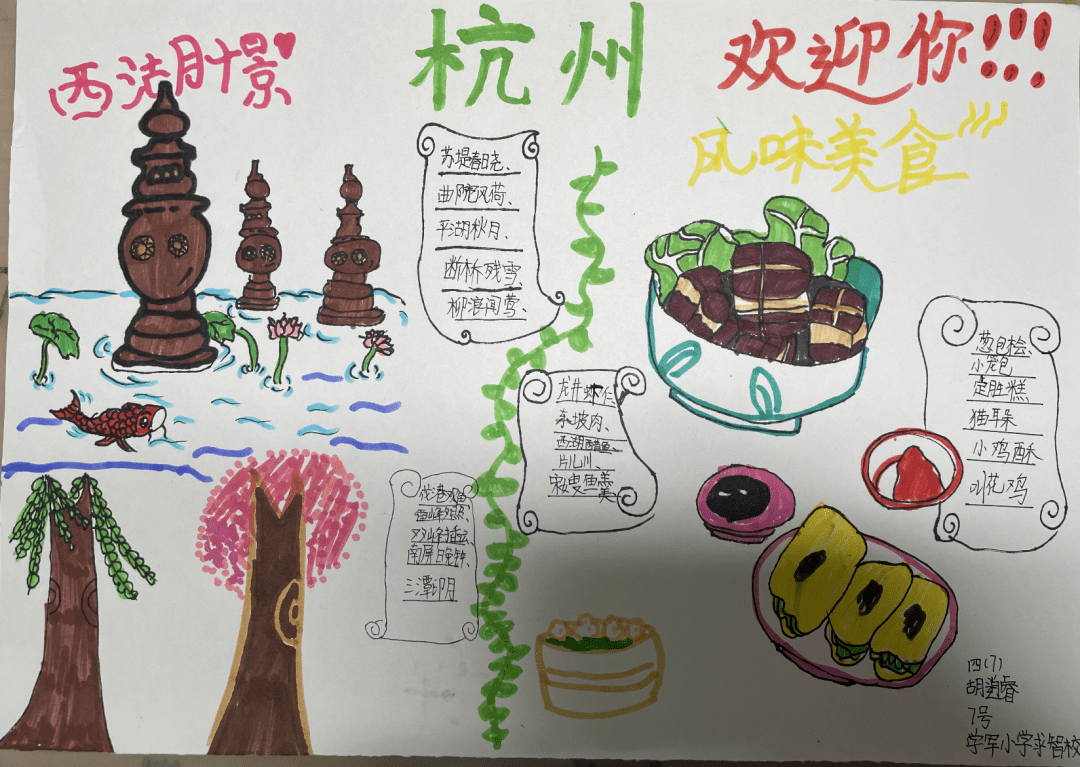 杭州
欢迎你!!!
西湖十景
风味美食
苏堤春晓、
曲院风荷、
平湖秋月、
断桥残雪、
柳浪闻莺、
花港观鱼
雷峰夕照、
双峰插云、
南屏晚钟、
三潭印月
龙井虾仁
东坡肉、
西湖醋鱼、
片儿川、
宋嫂鱼羹
葱包桧、
小笼包
定胜糕、
猫耳朵
小鸡酥
叫花鸡
四(7)
7号
学军小学求智校